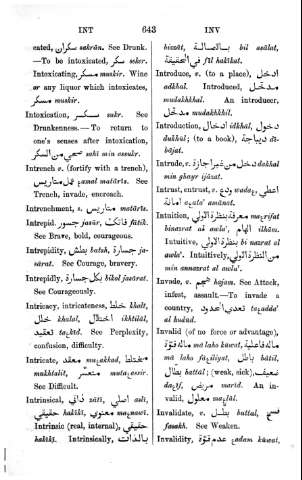 INT 643 INV
cated, سكران sakrân. See Drunk.
—To be intoxicated, سكر seker.
Intoxicating, مسكر muskir. Wine
or any liquor which intoxicates,
مسكر muskir.
Intoxication, سكر sukr. See
Drunkenness.—To return to
one's senses after intoxication,
صحي من السكر sahi min assukr.
Intrench v. (fortify with a trench),
عمل متاريس ęamal matârîs. See
Trench, invade, encroach.
Intrenchment, s. متاريس matârîs.
Intrepid. جسور jasûr فاتك fâtik.
See Brave, bold, courageous.
Intrepidity, بطش batsh, جسارة ja-
sârat. See Courage, bravery.
Intrepidly, بكل جسارة bikol jasârat.
See Courageously.
Intricacy, intricateness, خلط khalt,
خلل khalal, اختلال ikhtilâl,
تعقيد taękîd. See Perplexity,
confusion, difficulty.
Intricate, معقد muęakkad, مختلط
mukhtalit, متعسر mutaęassir.
See Difficult.
Intrinsical, ذاتي zâtî, اصلي aslî,
حقيقي hakîkî, معنوي maęnawî.
Intrinsic (real, internal), حقيقي
hakîkî. Intrinsically, بالذات
bizzât, بالاصالة bil asâlat,
في الحقيقة fîl hakîkat.
Introduce, v. (to a place), ادخل
adkhal. Introduced, مدخل
mudakhkhal. An introducer,
مدخل mudakhkhil.
Introduction, ادخال idkhal, دخول
dukhul; (to a book), ديباجة dî-
bâjat.
Intrude, v. دخل من غير اجازة dakhal
min ghayr ijâzat.
Intrust, entrust, v. ودع wadaę, اعطي
امانة aęata' amânat.
Intuition, معرفة بنظرة الاولي maęrifat
binazrat al awla', الهام ilhâm.
Intuitive, بنظرة الاولي bi nazrat al
awla'. Intuitively, من النظرة الاولي
min annazrat al awla'.
Invade, v. هجم hajam. See Attack,
infest, assault.—To invade a
country, تعدي الحدود taęadda'
al hudûd.
Invalid (of no force or advantage),
ما له قوة ma laho kûwat, ماله فاعلية
mâ laho fâęiliyat, باطل bâtil,
بطال battal; (weak, sick), ضعيف
daęîf, مريض marîd. An in-
valid, معلول maęlâl.
Invalidate, v. بطل buttal, فسخ
fasakh. See Weaken.
Invalidity, عدم قوة ęadam kûwat,